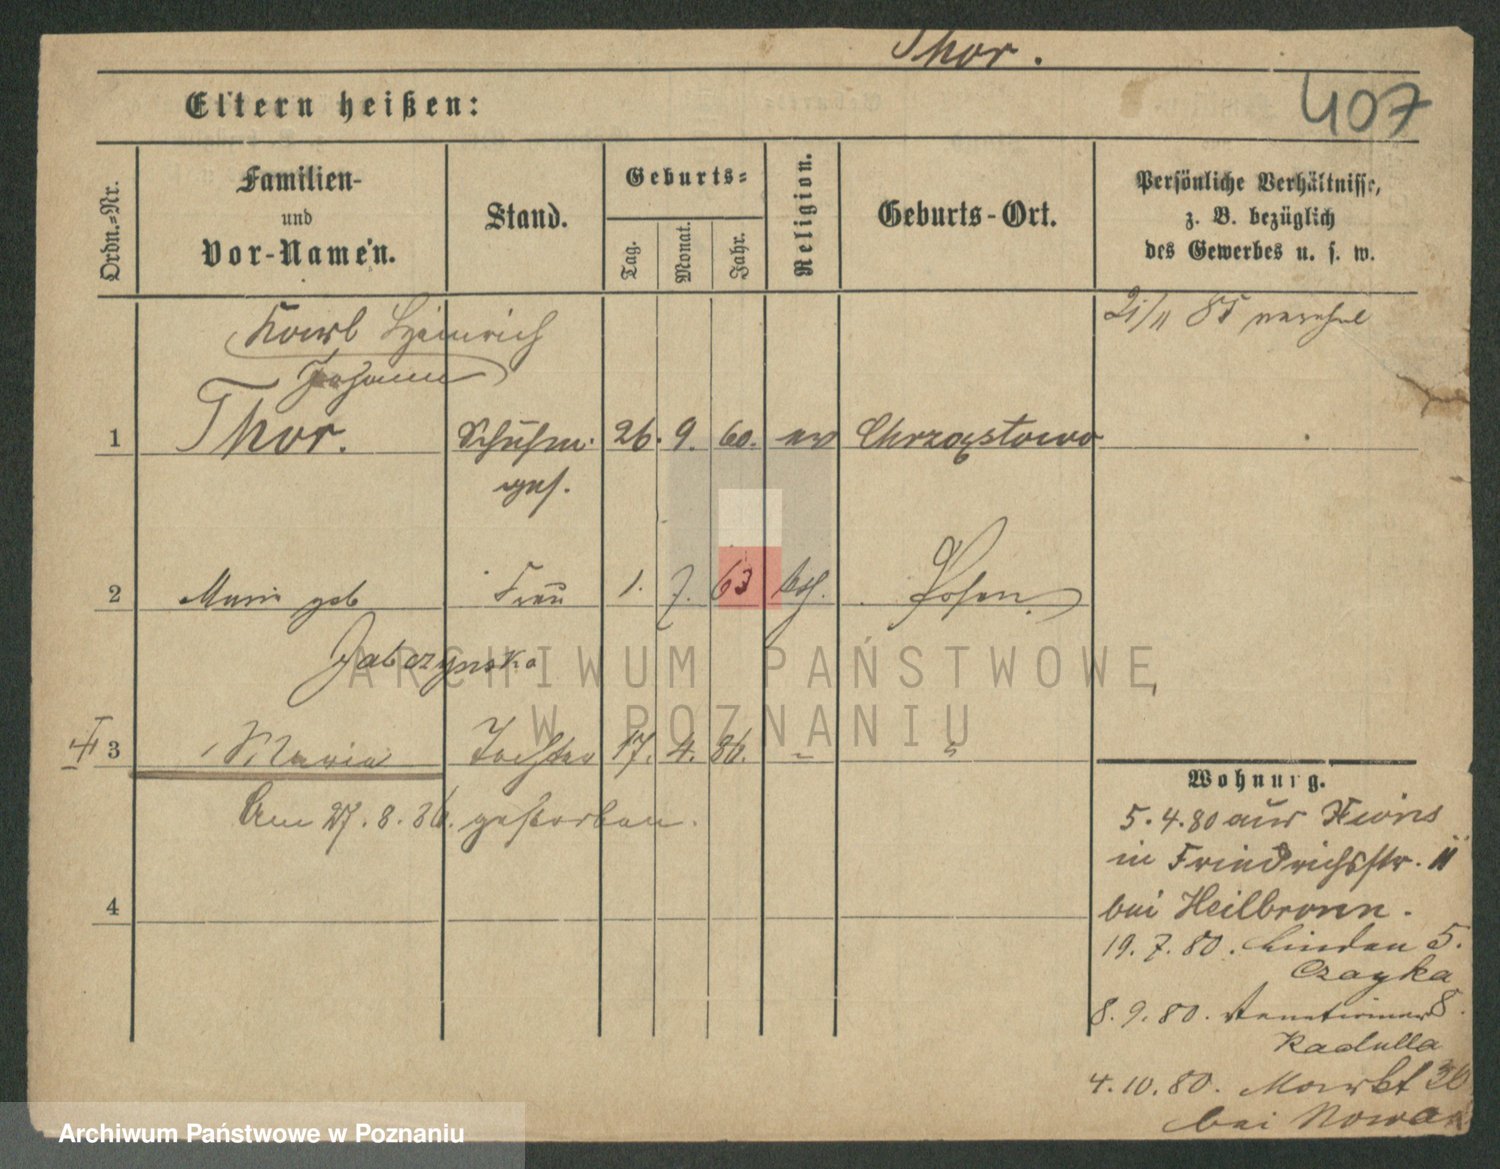 Thor.
Eltern heißen:
407
Ordn.-Nr.
Familien-
und
Vor-Namen.
Stand.
Geburts-
Tag.
Monat.
Jahr.
Religion.
Geburts-Ort.
Persönliche Verhältnisse,
z. B. bezüglich
des Gewerbes u. s. w.
21/11 85
Karl Heinrich
Johann
1 Thor. Schuhm. 26. 9. 60. ev Chrząstowo
ges.
2 Marie geb Frau 1. 7. 63 kath. Posen
Jabczynska
3 Maria Tochter 17. 4. 86. " "
Am 27. 8. 86. gestorben.
4
Wohnung.
5. 4. 80 aus Xions
in Friedrichsstr. 11
bei Heilbronn.
19. 7. 80. Linden 5.
Czayka
8. 9. 80. Venetianer 8.
Kadulla
4. 10. 80. Markt 36
bei Nowa
ARCHIWUM PAŃSTWOWE
W POZNANIU
Archiwum Państwowe w Poznaniu